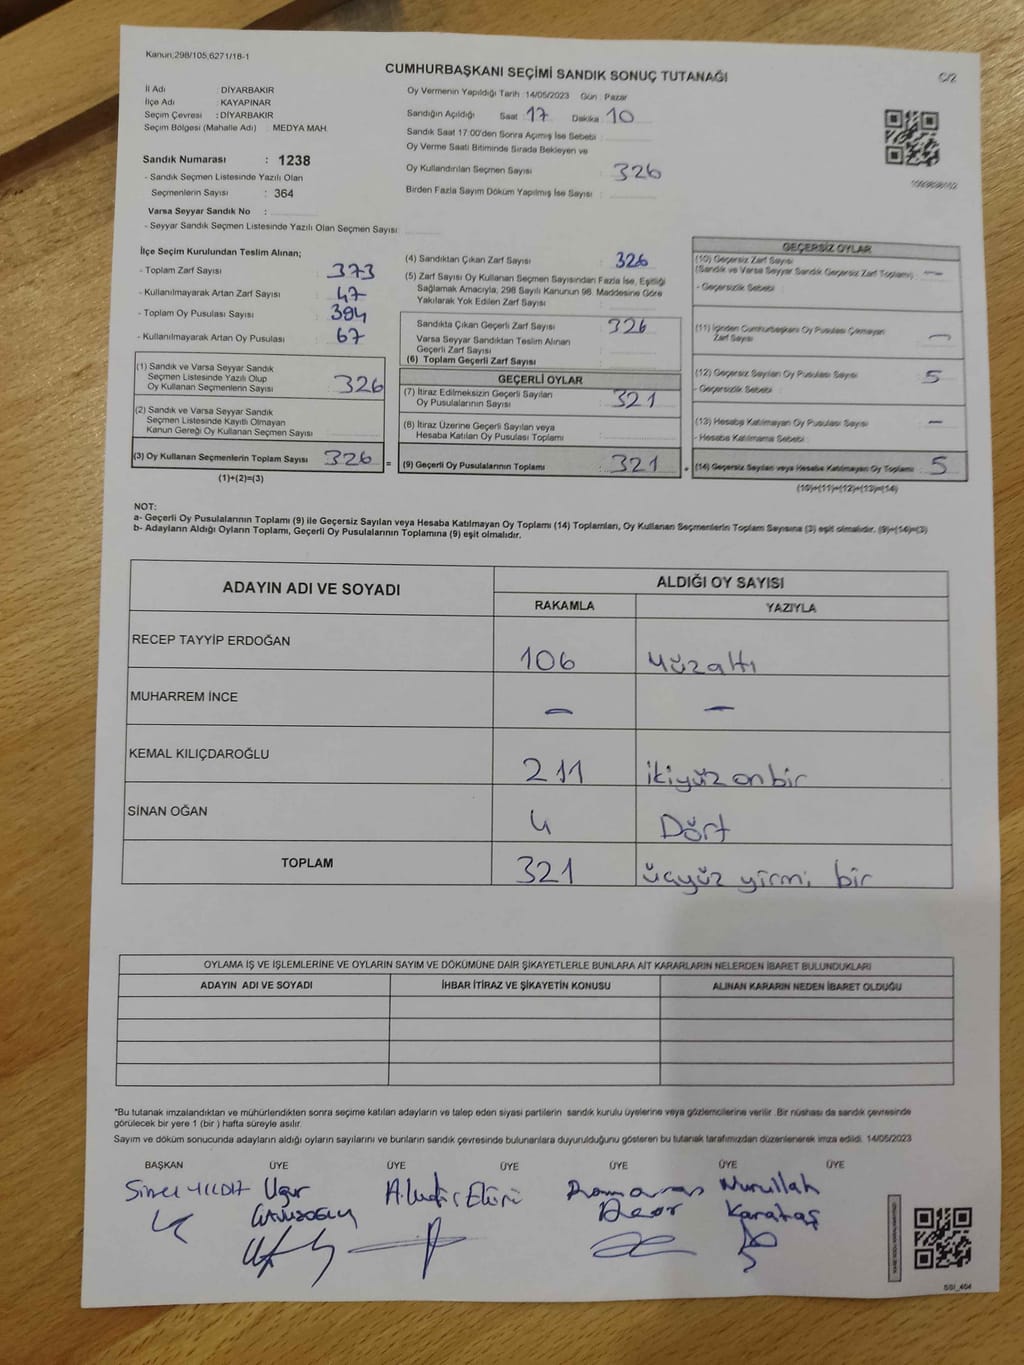 Kanun:298/105,6271/18-1
CUMHURBAŞKANI SEÇİMİ SANDIK SONUÇ TUTANAĞI
C/2
İl Adı : DİYARBAKIR
İlçe Adı : KAYAPINAR
Seçim Çevresi : DİYARBAKIR
Seçim Bölgesi (Mahalle Adı) : MEDYA MAH.
Sandık Numarası : 1238
- Sandık Seçmen Listesinde Yazılı Olan
Seçmenlerin Sayısı : 364
Varsa Seyyar Sandık No :
- Seyyar Sandık Seçmen Listesinde Yazılı Olan Seçmen Sayısı:
Oy Vermenin Yapıldığı Tarih :14/05/2023 Gün : Pazar
Sandığın Açıldığı Saat : 17 Dakika : 10
Sandık Saat 17:00'den Sonra Açımış İse Sebebi :
Oy Verme Saati Bitiminde Sırada Bekleyen ve
Oy Kullandırılan Seçmen Sayısı : 326
Birden Fazla Sayım Döküm Yapılmış İse Sayısı :
İlçe Seçim Kurulundan Teslim Alınan;
- Toplam Zarf Sayısı : 373
- Kullanılmayarak Artan Zarf Sayısı : 47
- Toplam Oy Pusulası Sayısı : 394
- Kullanılmayarak Artan Oy Pusulası : 67
(1) Sandık ve Varsa Seyyar Sandık
Seçmen Listesinde Yazılı Olup
Oy Kullanan Seçmenlerin Sayısı : 326
(2) Sandık ve Varsa Seyyar Sandık
Seçmen Listesinde Kayıtlı Olmayan
Kanun Gereği Oy Kullanan Seçmen Sayısı :
(3) Oy Kullanan Seçmenlerin Toplam Sayısı : 326 =
(1)+(2)=(3)
(4) Sandıktan Çıkan Zarf Sayısı : 326
(5) Zarf Sayısı Oy Kullanan Seçmen Sayısından Fazla İse, Eşitliği
Sağlamak Amacıyla, 298 Sayılı Kanunun 98. Maddesine Göre
Yakılarak Yok Edilen Zarf Sayısı :
Sandıkta Çıkan Geçerli Zarf Sayısı : 326
Varsa Seyyar Sandıktan Teslim Alınan
Geçerli Zarf Sayısı :
(6) Toplam Geçerli Zarf Sayısı :
GEÇERLİ OYLAR
(7) İtiraz Edilmeksizin Geçerli Sayılan
Oy Pusulalarının Sayısı : 321
(8) İtiraz Üzerine Geçerli Sayılan veya
Hesaba Katılan Oy Pusulası Toplamı :
(9) Geçerli Oy Pusulalarının Toplamı : 321 +
GEÇERSİZ OYLAR
(10) Geçersiz Zarf Sayısı
(Sandık ve Varsa Seyyar Sandık Geçersiz Zarf Toplamı) : —
- Geçersizlik Sebebi :
(11) İçinden Cumhurbaşkanı Oy Pusulası Çıkmayan
Zarf Sayısı : —
(12) Geçersiz Sayılan Oy Pusulası Sayısı : 5
- Geçersizlik Sebebi :
(13) Hesaba Katılmayan Oy Pusulası Sayısı : —
- Hesaba Katılmama Sebebi :
(14) Geçersiz Sayılan veya Hesaba Katılmayan Oy Toplamı : 5
(10)+(11)+(12)+(13)=(14)
NOT:
a- Geçerli Oy Pusulalarının Toplamı (9) ile Geçersiz Sayılan veya Hesaba Katılmayan Oy Toplamı (14) Toplamları, Oy Kullanan Seçmenlerin Toplam Sayısına (3) eşit olmalıdır. (9)+(14)=(3)
b- Adayların Aldığı Oyların Toplamı, Geçerli Oy Pusulalarının Toplamına (9) eşit olmalıdır.
ADAYIN ADI VE SOYADI ALDIĞI OY SAYISI
RAKAMLA YAZIYLA
RECEP TAYYİP ERDOĞAN 106 yüzaltı
MUHARREM İNCE — —
KEMAL KILIÇDAROĞLU 211 ikiyüz onbir
SİNAN OĞAN 4 Dört
TOPLAM 321 üçyüz yirmi bir
OYLAMA İŞ VE İŞLEMLERİNE VE OYLARIN SAYIM VE DÖKÜMÜNE DAİR ŞİKAYETLERLE BUNLARA AİT KARARLARIN NELERDEN İBARET BULUNDUKLARI
ADAYIN ADI VE SOYADI İHBAR İTİRAZ VE ŞİKAYETİN KONUSU ALINAN KARARIN NEDEN İBARET OLDUĞU
*Bu tutanak imzalandıktan ve mühürlendikten sonra seçime katılan adayların ve talep eden siyasi partilerin sandık kurulu üyelerine veya gözlemcilerine verilir. Bir nüshası da sandık çevresinde
görülecek bir yere 1 (bir ) hafta süreyle asılır.
Sayım ve döküm sonucunda adayların aldığı oyların sayılarını ve bunların sandık çevresinde bulunanlara duyurulduğunu gösteren bu tutanak tarafımızdan düzenlenerek imza edildi. 14/05/2023
BAŞKAN ÜYE ÜYE ÜYE ÜYE ÜYE ÜYE
YILDIZ Uğur Nurullah
Karataş